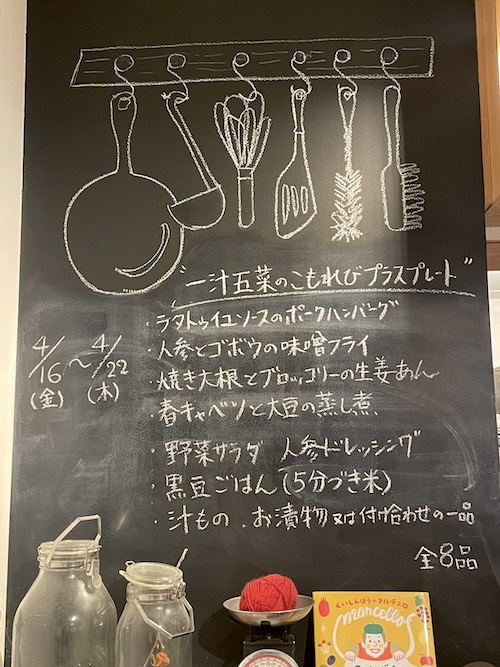 "一汁五菜のこもれびプラスプレート"
・ラタトゥイユソースのポークハンバーグ
・人参とゴボウの味噌フライ
・焼き大根とブロッコリーの生姜あん
・春キャベツと大豆の蒸し煮
・野菜サラダ 人参ドレッシング
・黒豆ごはん(5分づき米)
・汁もの ・お漬物又は付け合わせの一品
全8品
4/16(金)〜4/22(木)
くいしんぼうのマルチェロ
marcello